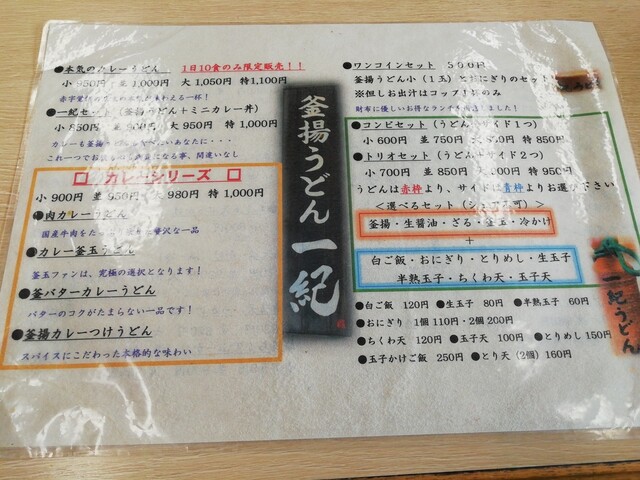 ●本気のカレーうどん 1日10食のみ限定販売！！
小950円 並1,000円 大1,050円 特1,100円
●一紀セット（釜揚うどん＋ミニカレー丼）
小850円 並900円 大950円 特1,000円
カレーも釜揚
これ一つでお腹も心も満足になる事、間違いなし
□ カレーシリーズ □
小900円 並950円 大980円 特1,000円
●肉カレーうどん
国産牛肉を 贅沢な一品
●カレー釜玉うどん
釜玉ファンは、究極の選択となります！
●釜バターカレーうどん
バターのコクがたまらない一品です！
●釜揚カレーつけうどん
スパイスにこだわった本格的な味わい
釜揚うどん 一紀
●ワンコインセット 500円
釜揚うどん小（1玉）とおにぎりのセット
※但しお出汁はコップ のみ
財布に優しいお得なランチ
●コンビセット（うどん＋サイド1つ）
小600円 並750円 大800円 特850円
●トリオセット（うどん＋サイド2つ）
小700円 並850円 大900円 特950円
うどんは赤枠より、サイドは青枠よりお選び下さい
＜選べるセット（シェア不可）＞
釜揚・生醤油・ざる・釜玉・冷かけ
＋
白ご飯・おにぎり・とりめし・生玉子
半熟玉子・ちくわ天・玉子天
●白ご飯 120円 ●生玉子 80円 ●半熟玉子 60円
●おにぎり 1個110円・2個200円
●ちくわ天 120円 ●玉子天 100円 ●とりめし150円
●玉子かけご飯 250円 ●とり天（2個）160円
一紀うどん